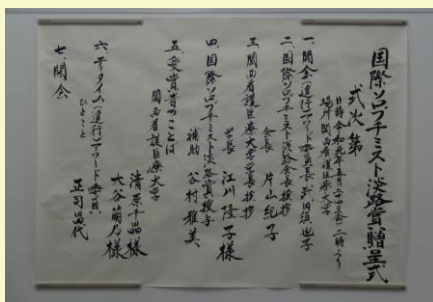 国際ソロプチミスト淡路賞贈呈式
式次第
日時 令和元年五月二十四日(金)二時より
場所 関西看護医療大学
一、開会(進行)アワード委員長 武田須也子
二、国際ソロプチミスト淡路会長挨拶
会長 片山紀子
三、関西看護医療大学学長挨拶
学長 江川隆子様
四、国際ソロプチミスト淡路賞授与
補助 谷村雅美
五、受賞者のことば
関西看護医療大学
清原千晶様
大谷蘭乃様
六、ティタイム(進行)アワード委員
ひとこと 正司昌代
七、閉会